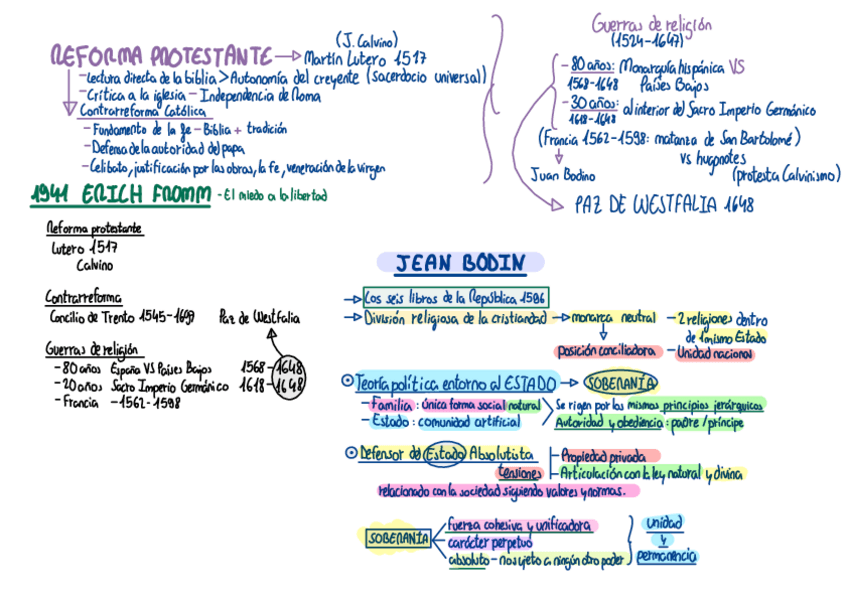 (J. Calvino)
REFORMA PROTESTANTE → Martín Lutero 1517
- Lectura directa de la biblia > Autonomía del creyente (sacerdocio universal)
- Crítica a la iglesia - Independencia de Roma
Contrarreforma Católica
- Fundamento de la fe - Biblia + tradición
- Defensa de la autoridad del papa
- Celibato, justificación por las obras, la fe, veneración de la virgen
Guerras de religión
(1524-1647)
- 80 años: Monarquía hispánica VS
1568-1648 Países Bajos
- 30 años: al interior del Sacro Imperio Germánico
1618-1648
(Francia 1562-1598: matanza de San Bartolomé)
vs hugnotes
Juan Bodino (protesta Calvinismo)
PAZ DE WESTFALIA 1648
1941 ERICH FROMM - El miedo a la libertad
Reforma protestante
Lutero 1517
Calvino
Contrarreforma
Concilio de Trento 1545-
Paz de Westfalia
Guerras de religión
- 80 años España VS Países Bajos 1568-1648
- 20 años Sacro Imperio Germánico 1618-1648
- Francia - 1562-1598
JEAN BODIN
→ Los seis libros de la República 1586
→ División religiosa de la cristiandad → monarca neutral - 2 religiones dentro
de 1 mismo Estado
posición conciliadora - Unidad nacional
Teoría política entorno al ESTADO → SOBERANÍA
- Familia: única forma social natural
- Estado: comunidad artificial
Se rigen por los mismos principios jerárquicos
Autoridad y obediencia: padre/príncipe
Defensor del Estado Absolutista
tensiones
- Propiedad privada
- Articulación con la ley natural y divina
relacionado con la sociedad siguiendo valores y normas.
SOBERANÍA
fuerza cohesiva y unificadora
carácter perpetuo
absoluto - no sujeto a ningún otro poder
unidad
y
permanencia